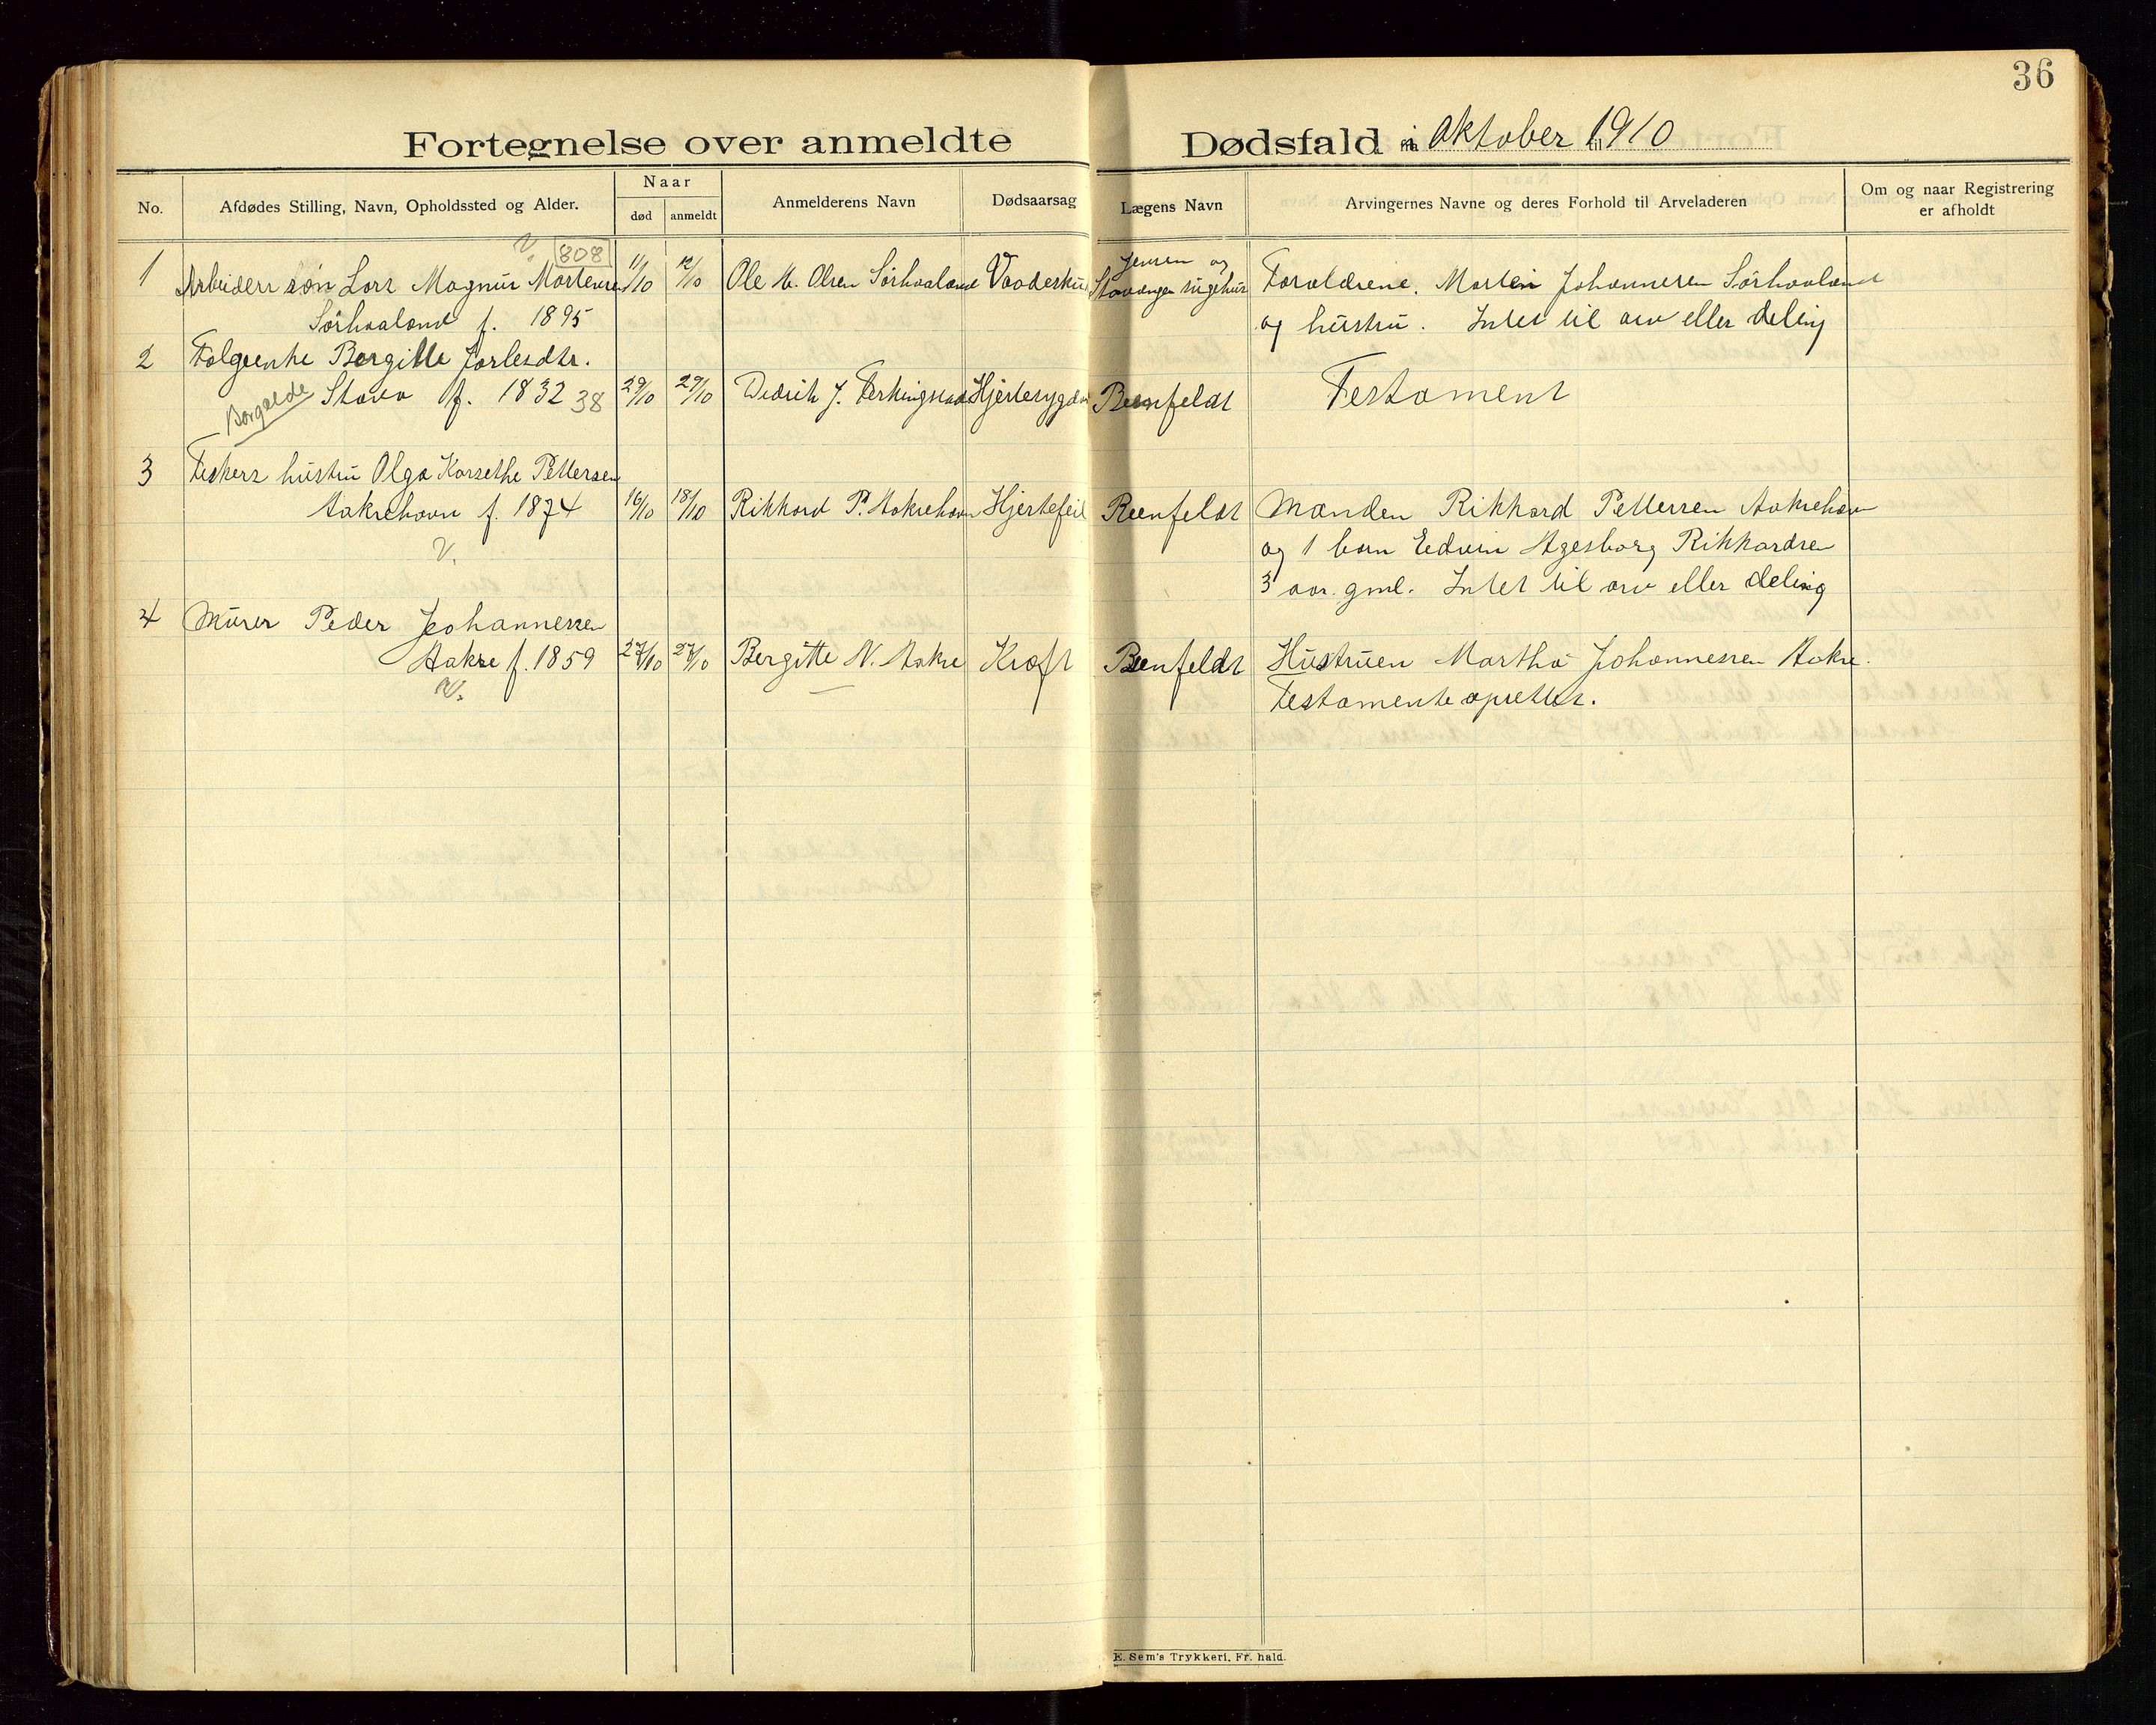 36
Fortegnelse over anmeldte Dødsfald i Oktober 1910
No. Afdødes Stilling, Navn, Opholdssted og Alder. Naar død anmeldt Anmelderens Navn Dødsaarsag Lægens Navn Arvingernes Navne og deres Forhold til Arveladeren Om og naar Registrering er afholdt
V. 808
1 Arbeiders søn Lars Magnus Mortensen 11/10 12/10 Ole M. Olsen Sørhaaland Vaadeskud Jensen og Stavanger sugehus Foraldrene. Morten Johannesen Sørhaaland
Sørhaaland f. 1895 og hustru. Intet til arv eller deling
2 Folgeenke Borgille Jorlesdtr.
Borgalde Stava f. 1832 38 29/10 29/10 Didrik J. Ferkingstad Hjertesygdom Testament
3 Fiskers hustru Olga Karsethe Pettersen
Aakrehavn f. 1874 16/10 18/10 Rikkard P. Aakrehavn Hjertefeil Manden Rikkard Pettersen Aakrehavn
V. og 1 barn Edvin Agesborg Rikkardsen
3 aar gml. Intet til arv eller deling
4 Murer Peder Johannessen
Aakre f. 1859 27/10 27/10 Bergitte N. Aakre Kræft Hustruen Martha Johannessen Aakre.
V. Testamente oprettet.
E. Sem's Trykkeri, Fr. hald.